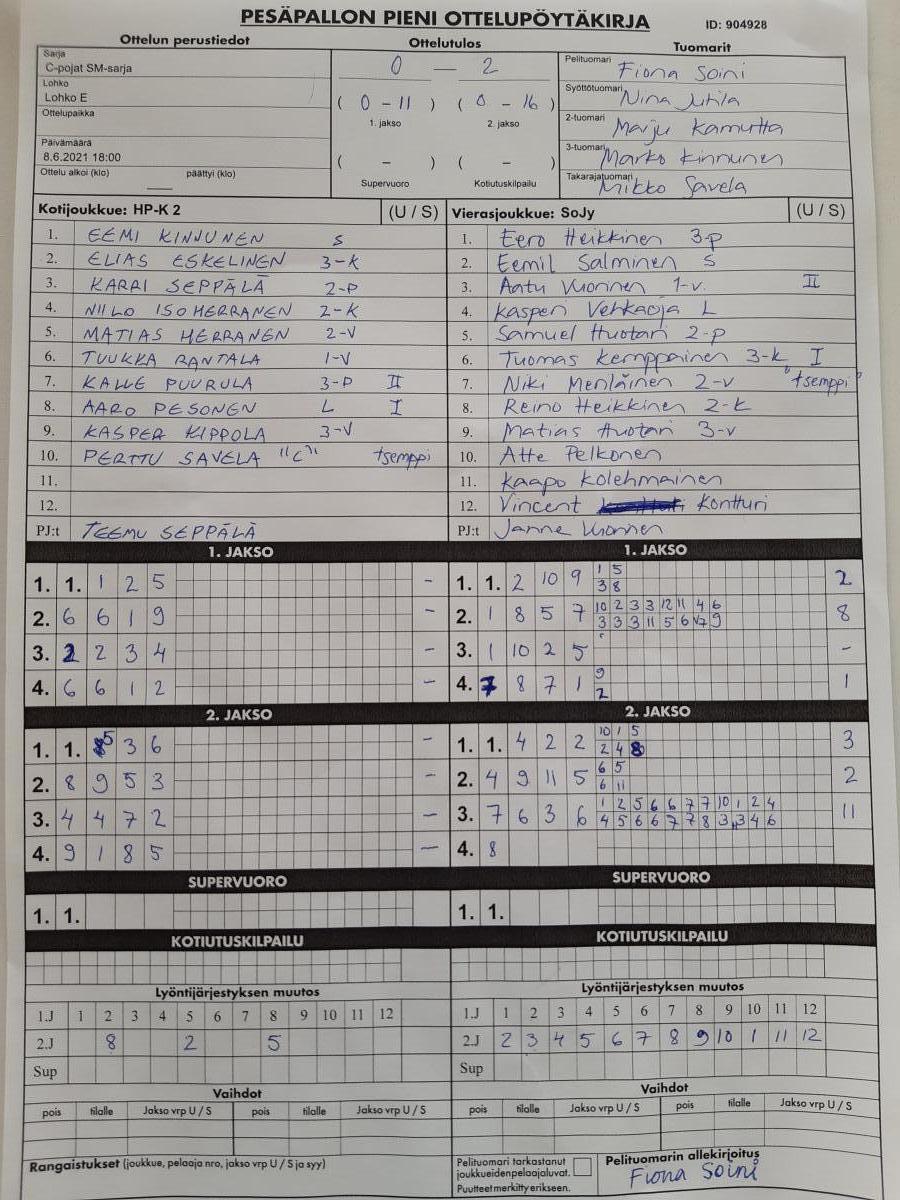 PESÄPALLON PIENI OTTELUPÖYTÄKIRJA ID: 904928
Ottelun perustiedot Ottelutulos Tuomarit
Sarja
C-pojat SM-sarja
Lohko
Lohko E
Ottelupaikka
Päivämäärä
8.6.2021 18:00
Ottelu alkoi (klo) päättyi (klo)
0 — 2
( 0 - 11 ) ( 0 - 16 )
1. jakso 2. jakso
( - ) ( - )
Supervuoro Kotiutuskilpailu
Pelituomari Fiona Soini
Syöttötuomari Nina Jutila
2-tuomari Marju Kamutta
3-tuomari Marko Kinnunen
Takarajatuomari Mikko Savela
Kotijoukkue: HP-K 2 (U / S)
1. EEMI KINNUNEN S
2. ELIAS ESKELINEN 3-K
3. KARRI SEPPÄLÄ 2-P
4. NIILO ISOHERRANEN 2-K
5. MATIAS HERRANEN 2-V
6. TUUKKA RANTALA 1-V
7. KALLE PUURULA 3-P II
8. AARO PESONEN L I
9. KASPER KIPPOLA 3-V
10. PERTTU SAVELA "C" tsemppi
11.
12.
PJ:t TEEMU SEPPÄLÄ
Vierasjoukkue: SoJy (U / S)
1. Eero Heikkinen 3-p
2. Eemil Salminen S
3. Aatu Vuorinen 1-v. II
4. Kasperi Vehkaoja L
5. Samuel Huotari 2-p
6. Tuomas Kemppainen 3-k I
7. Niki Menläinen 2-v "tsemppi"
8. Reino Heikkinen 2-k
9. Matias Huotari 3-v
10. Atte Pelkonen
11. Kaapo Kolehmainen
12. Vincent Kontturi
PJ:t Janne Vuorinen
1. JAKSO
1. 1. 1 2 5 -
2. 6 6 1 9 -
3. 2 2 3 4 -
4. 6 6 1 2 -
1. JAKSO
1 5
1. 1. 2 10 9 2
3 8
10 2 3 3 12 11 4 6
2. 1 8 5 7 8
3 3 3 11 5 6 7 9
3. 1 10 2 5 -
9
4. 7 8 7 1 1
2
2. JAKSO
1. 1. 5 3 6 -
2. 8 9 5 3 -
3. 4 4 7 2 -
4. 9 1 8 5 -
2. JAKSO
10 1 5
1. 1. 4 2 2 3
2 4 8
6 5
2. 4 9 11 5 2
6 11
1 2 5 6 6 7 7 10 1 2 4
3. 7 6 3 6 11
4 5 6 6 7 7 8 3 3 4 6
4. 8
SUPERVUORO
1. 1.
SUPERVUORO
1. 1.
KOTIUTUSKILPAILU
KOTIUTUSKILPAILU
Lyöntijärjestyksen muutos
1.J 1 2 3 4 5 6 7 8 9 10 11 12
2.J 8 2 5
Sup
Lyöntijärjestyksen muutos
1.J 1 2 3 4 5 6 7 8 9 10 11 12
2.J 2 3 4 5 6 7 8 9 10 1 11 12
Sup
Vaihdot
pois tilalle Jakso vrp U / S pois tilalle Jakso vrp U / S
Vaihdot
pois tilalle Jakso vrp U / S pois tilalle Jakso vrp U / S
Rangaistukset (joukkue, pelaaja nro, jakso vrp U / S ja syy)
Pelituomari tarkastanut
joukkueiden pelaajaluvat.
Puutteet merkitty erikseen.
Pelituomarin allekirjoitus
Fiona Soini